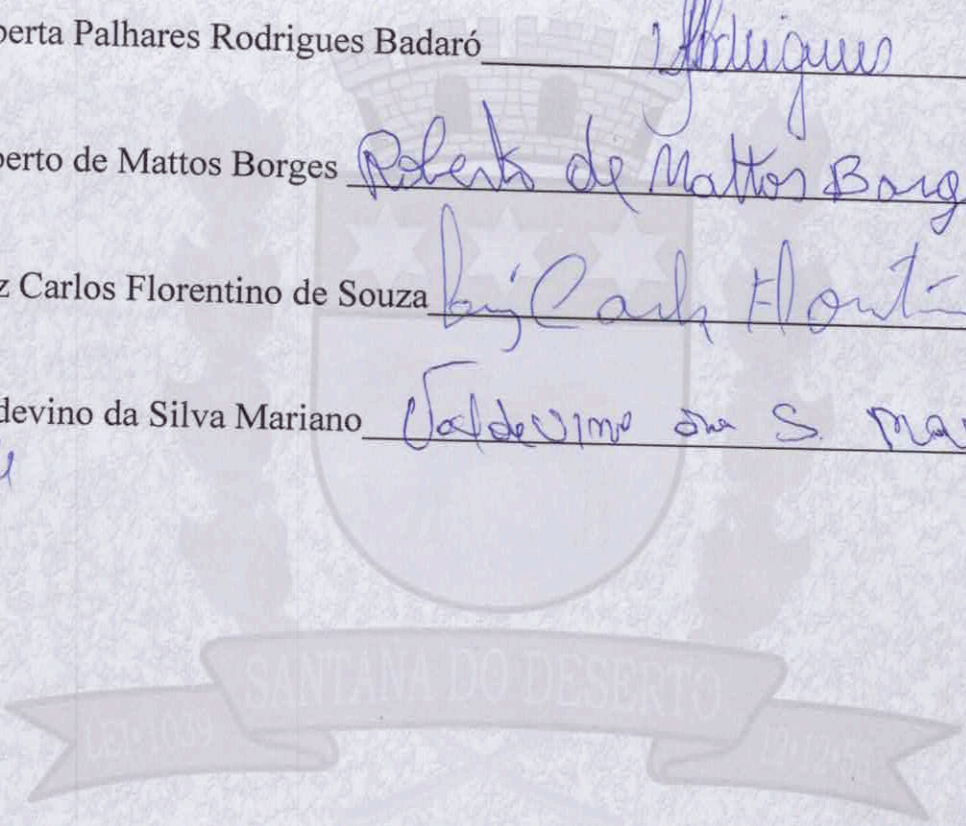 berta Palhares Rodrigues Badaró Rodrigues
berto de Mattos Borges Roberto de Mattos Borg
z Carlos Florentino de Souza Luiz Carlos Florenti
devino da Silva Mariano Valdevino da S. Mar
SANTANA DO DESERTO
LEI-1039 12-12-53